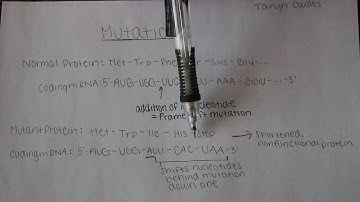 Taryn Dooles
Mutatio
Normal Protein: Met - Trp - Phe - Lys - Gly - ...
coding mRNA: 5'-AUG-UGG-UUC - AAA - GGU - ... - 3'
addition of nucleotide
= frameshift mutation
Mutant Protein: Met - Trp - Ile - His - Stop → Shortened,
nonfunctional protein
coding mRNA: 5'-AUG-UGG-AUU-CAC-UAA-3'
Shifts nucleotides
behind mutation
down one